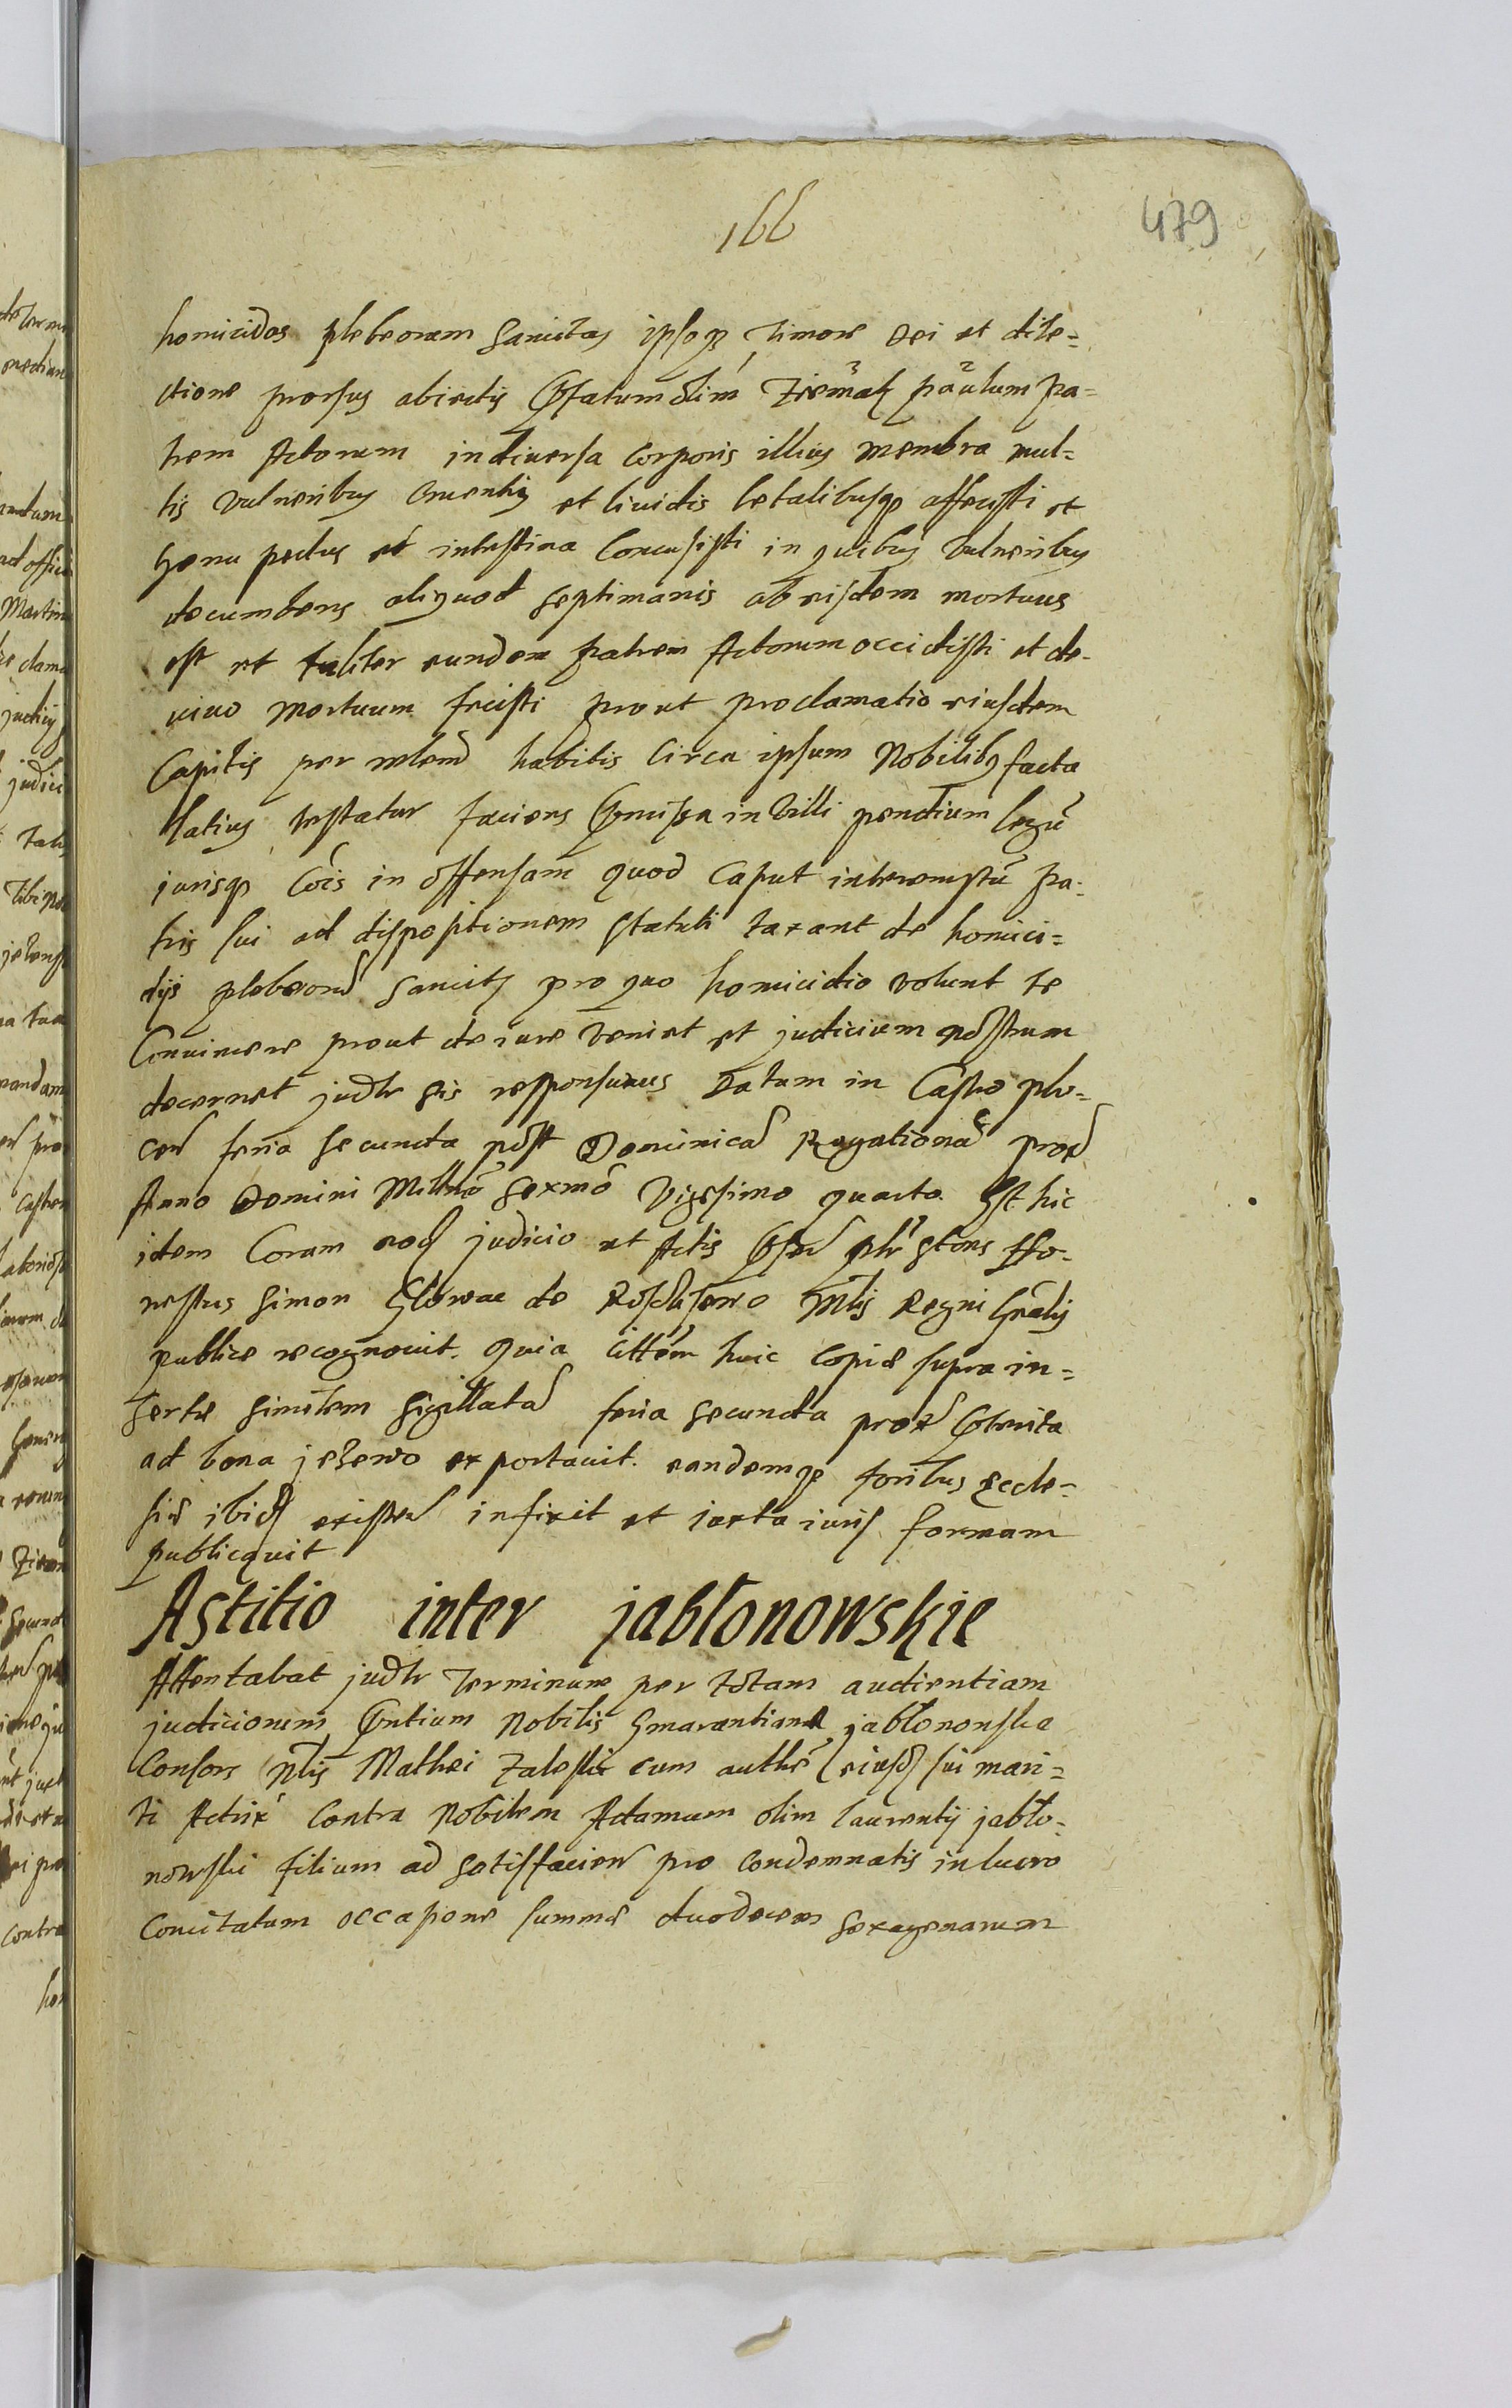 166
479
homicidas plebeorum sancitas ipsoq timore Dei et dile=
ctione prorsus abiectis olim Ziemak paulum pa=
trem Actorum in diuersa corporis illius membra mul=
tis vulneribus cruentis et liuidis letalibusq affecisti et
genu pectus et intestina concusisti in quibus vulneribus
decumbens aliquod septimanis ab eisdem mortuus
est et taliter eundem patrem Actorum occidisti et de
uiuo mortuum fecisti prout proclamatio eiusdem
Capitis per habitis circa ipsum Nobilibq facta
latius testatur faciens in villi pendium legu
jurisq Cois in offensam quod Caput interemptu pa=
tris sui ad dispositionem statuti taxant de homici=
dijs plebeor sancitj pro quo homicidio volunt te
Conuincere prout de iure veniet et judicium nostrum
decernet judtr sis responsurus Datum in Castro plo=
cen feria secunda post Dominica Rogationu prox
Anno Domini Millmo sexmo Vigesimo quarto Et hic
idem Coram eod judicio et Actis Ho=
nestus Simon Glowac de Regni Gralis
publice recognouit. quia litteram huic copiæ supra in=
sertæ similem sigillata feria secunda prox
ad bona jezewo exportauit. eandemq foribus Eccle=
siæ ibid existen infixit et iuxta iuris formam
publicauit
Astitio inter jabłonowskie
Attentabat judtr terminum per totam audientiam
judiciorum Nobilis jabłonowska
Consors Nlis Mathei Zaleski cum authe eiusd sui mari=
ti Actrix contra Nobilem Adamum olim Laurentij jabło=
nowski filium ad satisfacien pro condemnatis in lucro
Concitatum occasione summæ duodecem sexagenarum